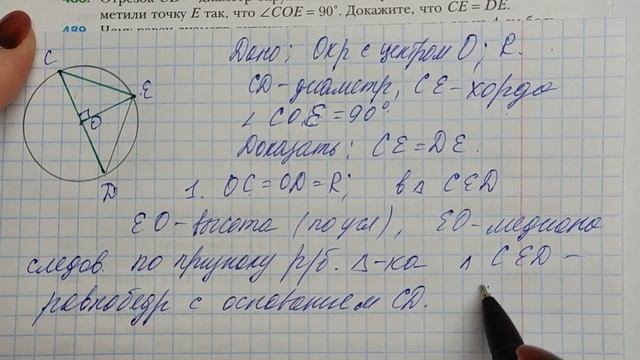 метили точку E так, что ∠COE = 90°. Докажите, что CE = DE.
C
E
O
D
Дано: Окр с центром O; R.
CD - диаметр, CE - хорда
∠ COE = 90°
Доказать: CE = DE.
1. OC = OD = R; в △ CED
EO - высота (по усл), EO - медиана
следов. по признаку р/б. △-ка △ CED -
равнобедр с основанием CD.